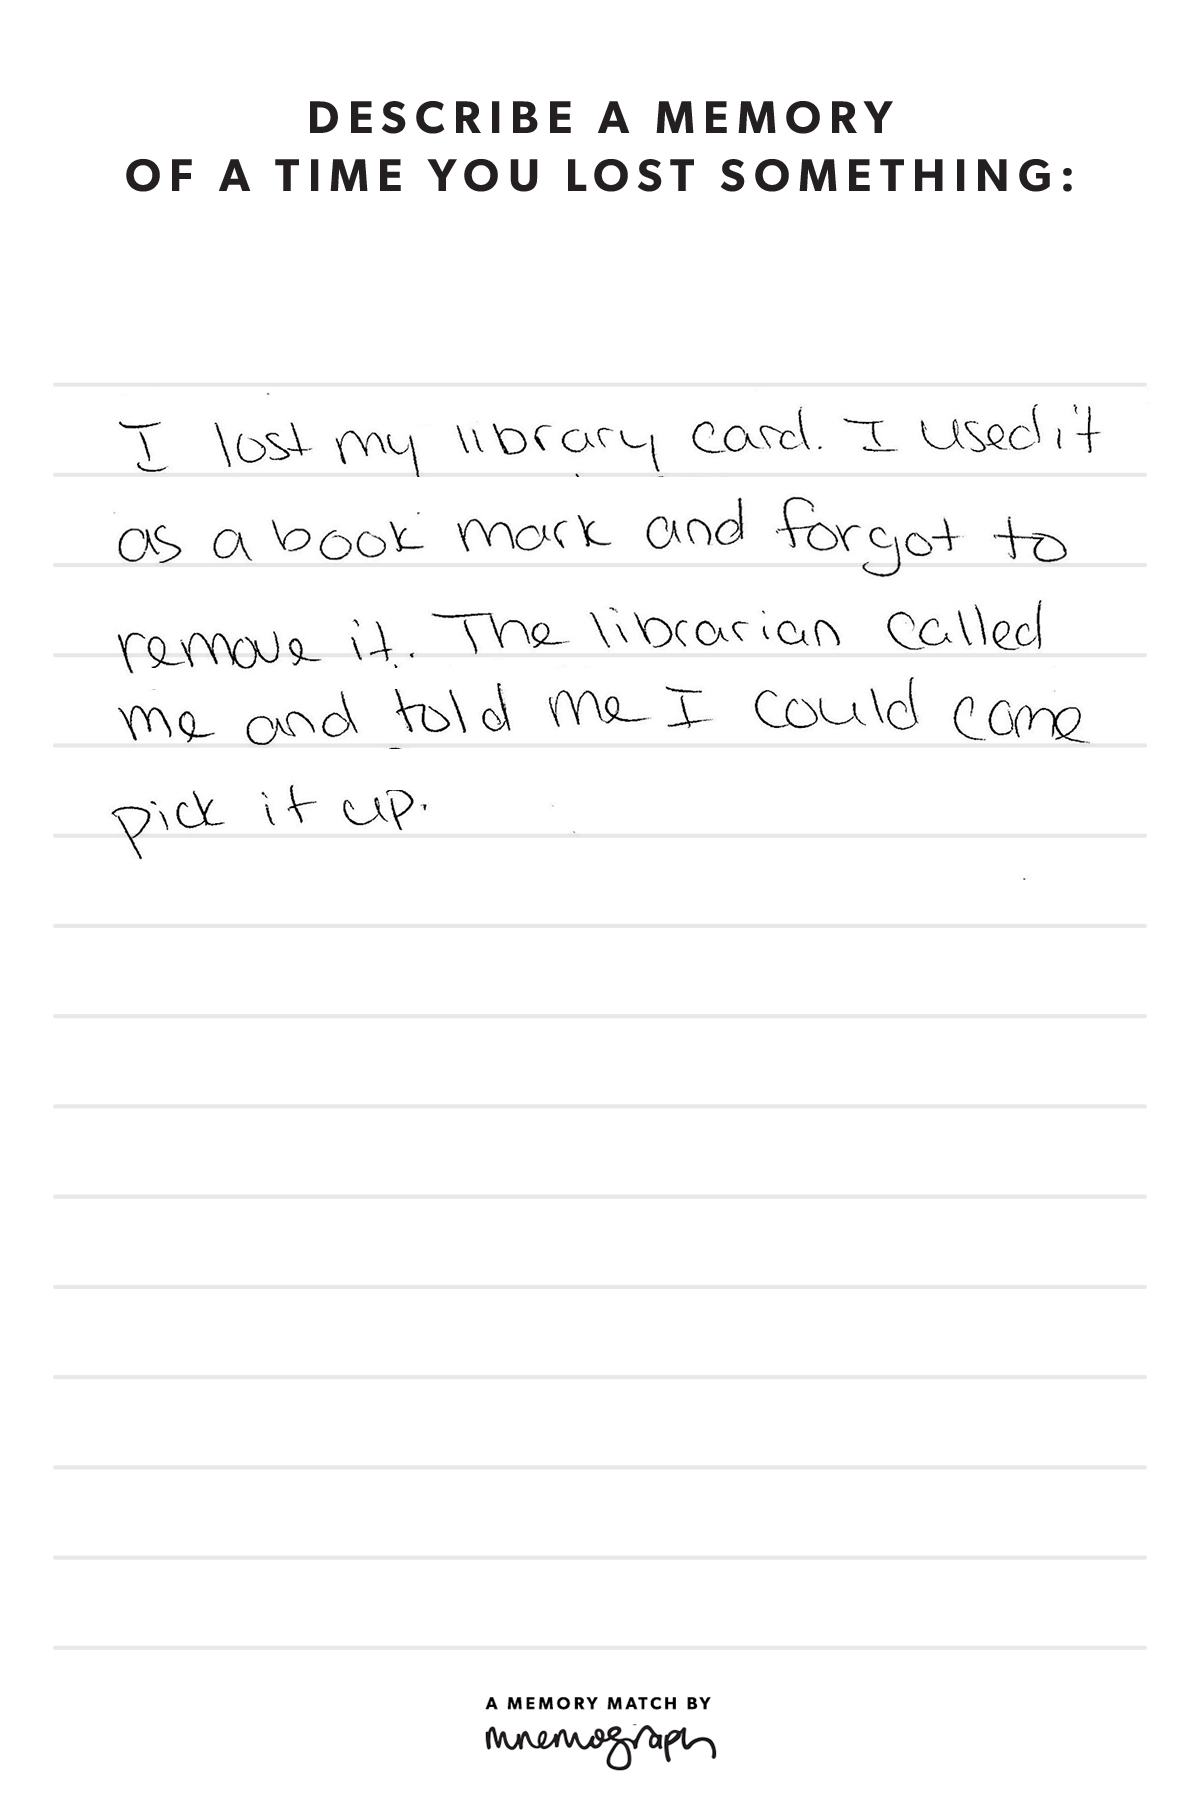 DESCRIBE A MEMORY
OF A TIME YOU LOST SOMETHING:
I lost my library card. I used it
as a book mark and forgot to
remove it. The librarian called
me and told me I could come
pick it up.
A MEMORY MATCH BY
mnemograph